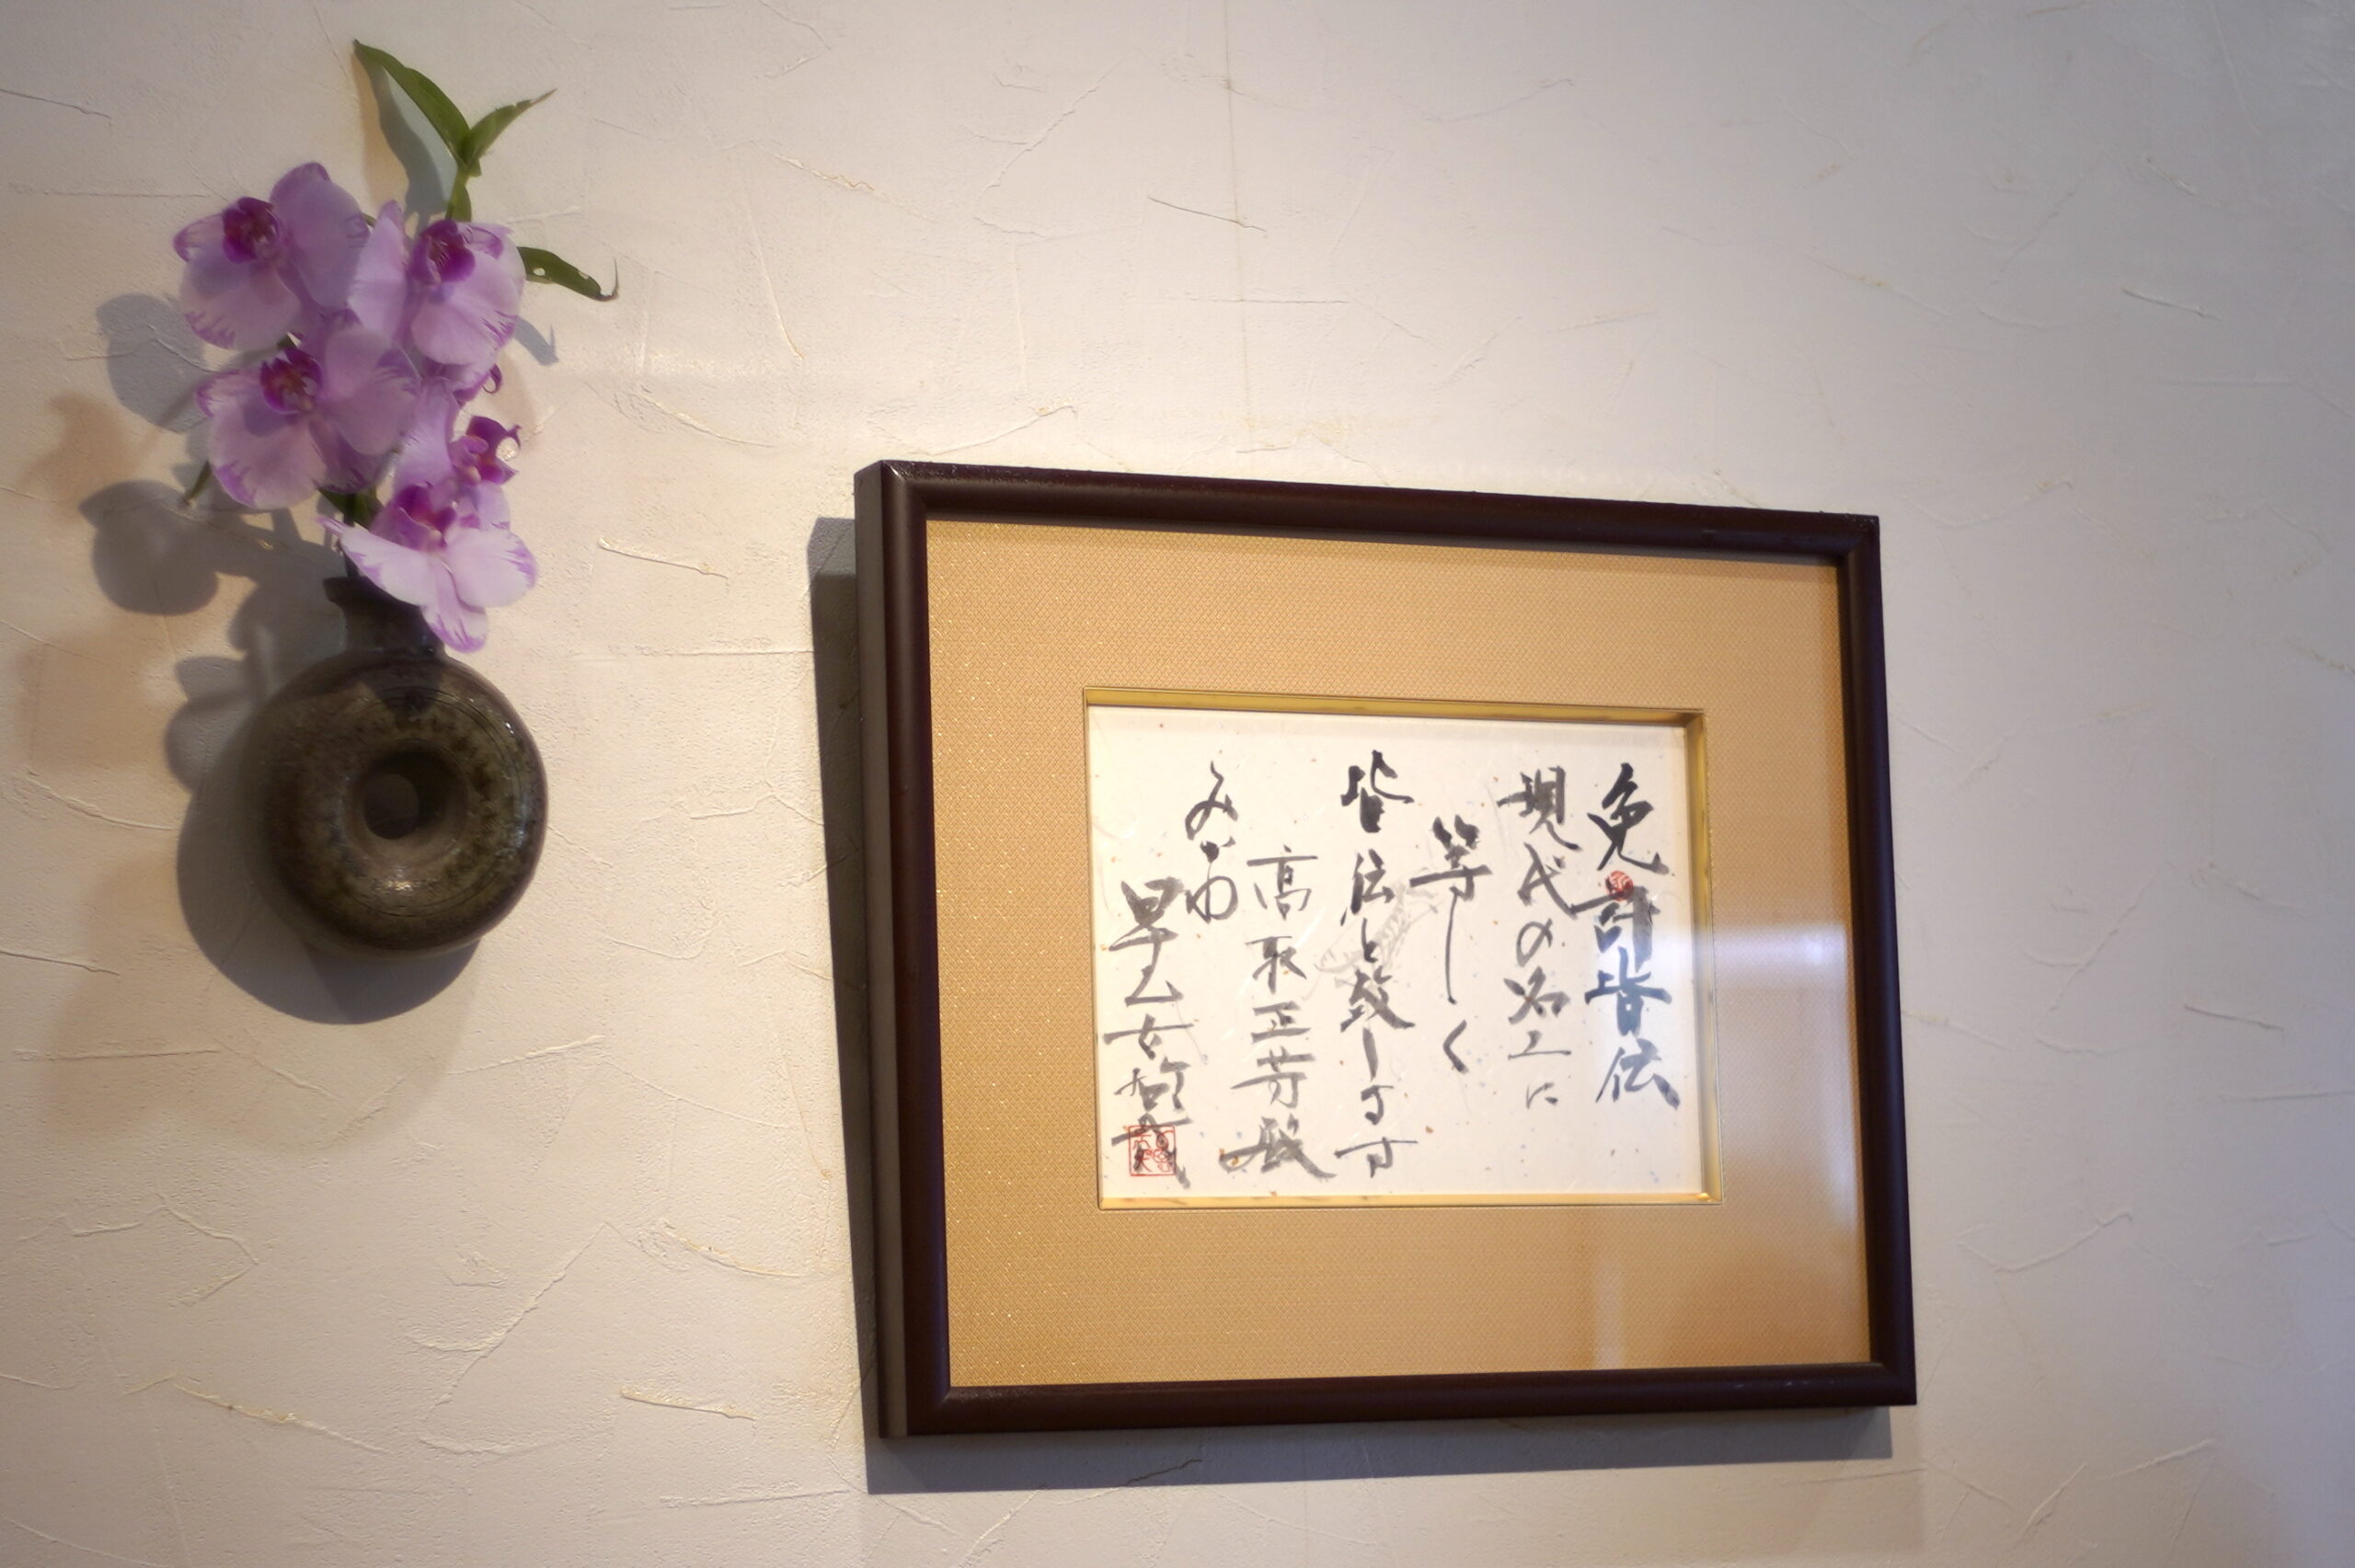 免許皆伝
現代の名工に
等しく
皆伝と致します
高取正芳殿
みかわ
早乙女哲哉